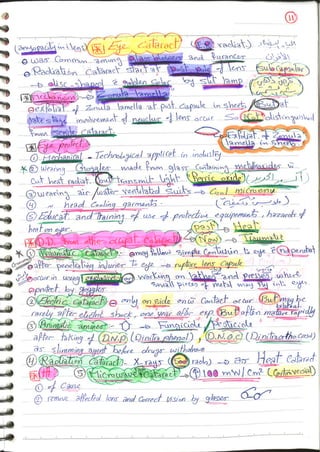 11
(opacity in lens) Eye Cataract (IR radiat.)
① was Common among glass blowers and furnaces
② Radiation Cataract start at Post. pole of lens Subcapsular
→ disc-shaped & golden Color by slit lamp
Mechanism → Zonula lamella
exfoliat. of Zonula lamella at post. Capsule in sheets But at
late stage involvement of nucleus of lens occur So Not distinguished
from senile cataract.
Exfoliat. of Zonula lamella in sheets
Eye protect.
① Mechanical - Technological applicat. in industry
② wearing Goggles made from glass containing metal oxides
Cut heat radiat. But transmit light. Ferric oxide
③ wearing air/water ventilated suits → Cool microenv.
④ Head Cooling garments.
⑤ Educat. and training of use of protective equipments, hazards of
heat on eye.
Past → Heat
D.D. from other occupat. Cataracts Now → Traumatic
① Traumatic Cataract: → may follow simple Contusion to eye if accidental
or after penetrating injuries to eye → rupture lens Capsule
occur in using explosives → working on lathes and presses where
protect. by goggles small pieces of metal may fly into eyes
② Electric Cataract → only on side one Contact occur But may be bilateral
rarely after electric shock, one year after exp. But often mature rapidly
③ → Fungicide / Pesticide
after taking of D.N.P (Dinitrophenol), D.N.O.C (Dinitroorthocresol)
as slimming agent before drugs withdrawn
④ Radiation Cataract: X-rays (500 rads) → as Heat Cataract
⑤ Microwave Cataract → ↑ 100 mW/Cm² (Controversial)
ttt
① of Cause
② remove affected lens and Correct vision by glasses